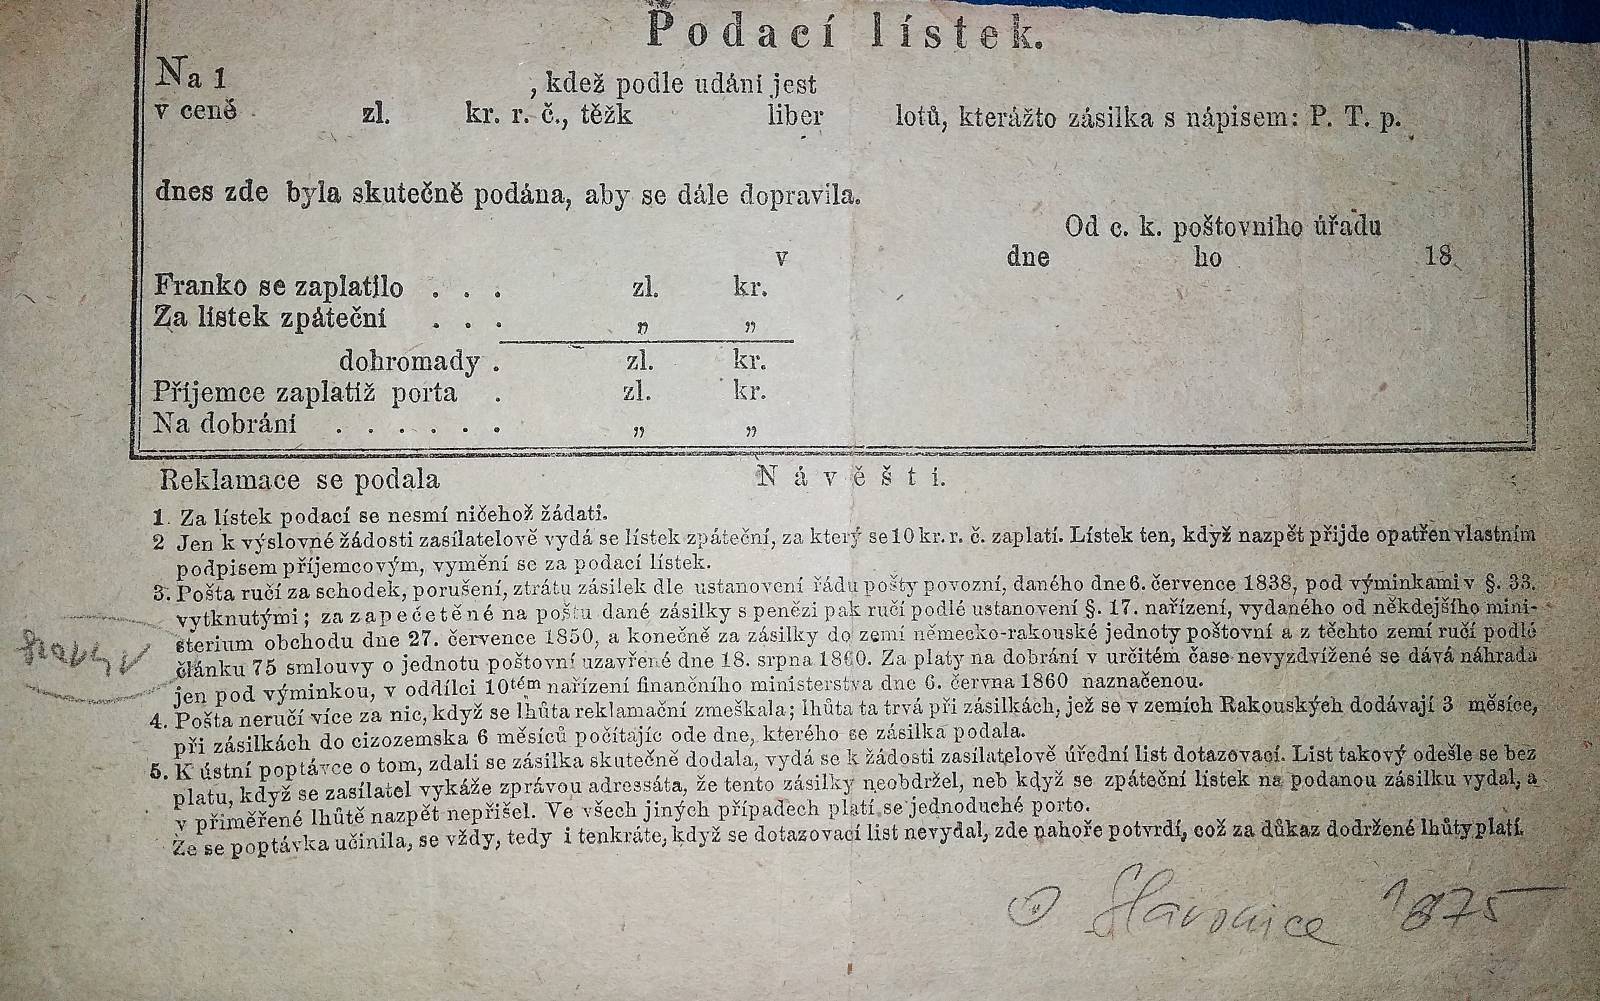 Podací lístek.
Na 1 , kdež podle udání jest
v ceně zl. kr. r. č., těžk liber lotů, kterážto zásilka s nápisem: P. T. p.
dnes zde byla skutečně podána, aby se dále dopravila.
Od c. k. poštovního úřadu
v dne ho 18
Franko se zaplatilo . . . zl. kr.
Za lístek zpáteční . . . „ „
dohromady . zl. kr.
Příjemce zaplatiž porta . zl. kr.
Na dobrání . . . . . . „ „
Reklamace se podala
Návěští.
1. Za lístek podací se nesmí ničehož žádati.
2 Jen k výslovné žádosti zasílatelově vydá se lístek zpáteční, za který se 10 kr. r. č. zaplatí. Lístek ten, když nazpět přijde opatřen vlastním
podpisem příjemcovým, vymění se za podací lístek.
3. Pošta ručí za schodek, porušení, ztrátu zásilek dle ustanovení řádu pošty povozní, daného dne 6. července 1838, pod výminkami v §. 33.
vytknutými; za zapečetěné na poštu dané zásilky s penězi pak ručí podlé ustanovení §. 17. nařízení, vydaného od někdejšího mini-
sterium obchodu dne 27. července 1850, a konečně za zásilky do zemí německo-rakouské jednoty poštovní a z těchto zemí ručí podlé
článku 75 smlouvy o jednotu poštovní uzavřené dne 18. srpna 1860. Za platy na dobrání v určitém čase nevyzdvížené se dává náhrada
jen pod výminkou, v oddílci 10tém nařízení finančního ministerstva dne 6. června 1860 naznačenou.
4. Pošta neručí více za nic, když se lhůta reklamační zmeškala; lhůta ta trvá při zásilkách, jež se v zemích Rakouských dodávají 3 měsíce,
při zásilkách do cizozemska 6 měsíců počítajíc ode dne, kterého se zásilka podala.
5. K ústní poptávce o tom, zdali se zásilka skutečně dodala, vydá se k žádosti zasílatelově úřední list dotazovací. List takový odešle se bez
platu, když se zasílatel vykáže zprávou adressáta, že tento zásilky neobdržel, neb když se zpáteční lístek na podanou zásilku vydal, a
v přiměřené lhůtě nazpět nepřišel. Ve všech jiných případech platí se jednoduché porto.
Že se poptávka učinila, se vždy, tedy i tenkráte, když se dotazovací list nevydal, zde nahoře potvrdí, což za důkaz dodržené lhůty platí.
Slavonice 1875